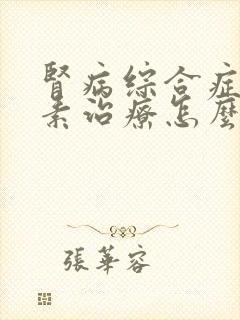 腎病綜合症
素治療怎麼
張華容